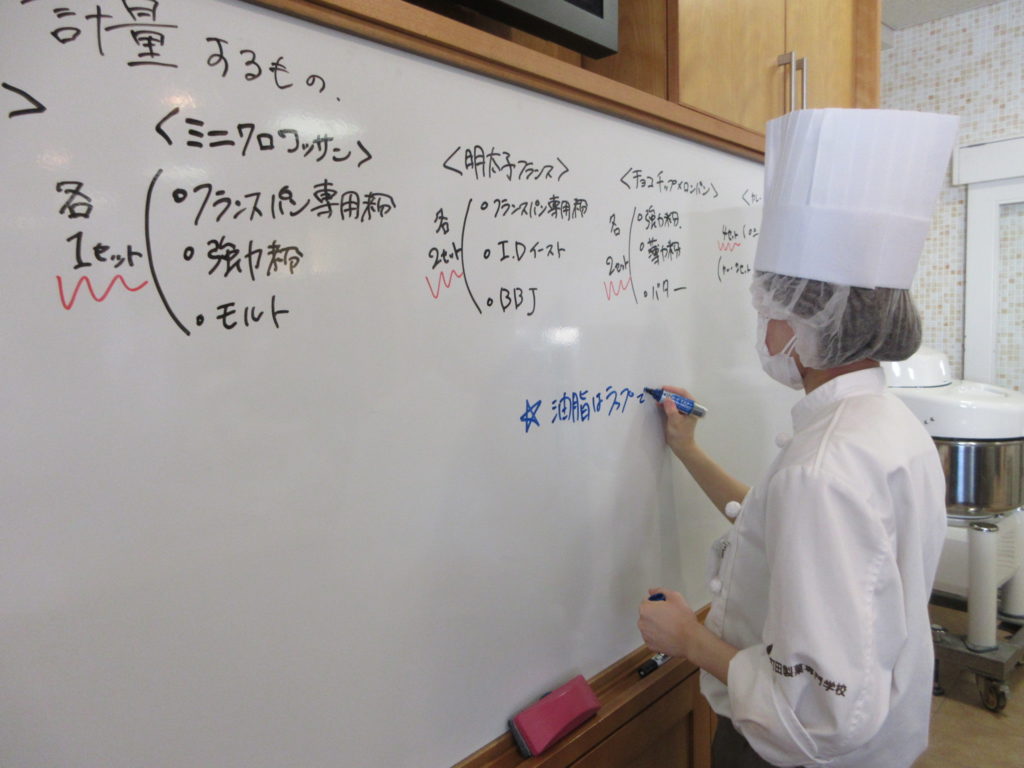 計量するもの.
>
<ミニクロワッサン>
各
1セット
• フランスパン専用粉
• 強力粉
• モルト
<明太子フランス>
各
2セット
• フランスパン専用粉
• I.Dイースト
• BBJ
<チョコチップメロンパン>
各
2セット
• 強力粉
• 薄力粉
• バター
<カレー
4セット
☆ 油脂はラップで
製菓専門学校